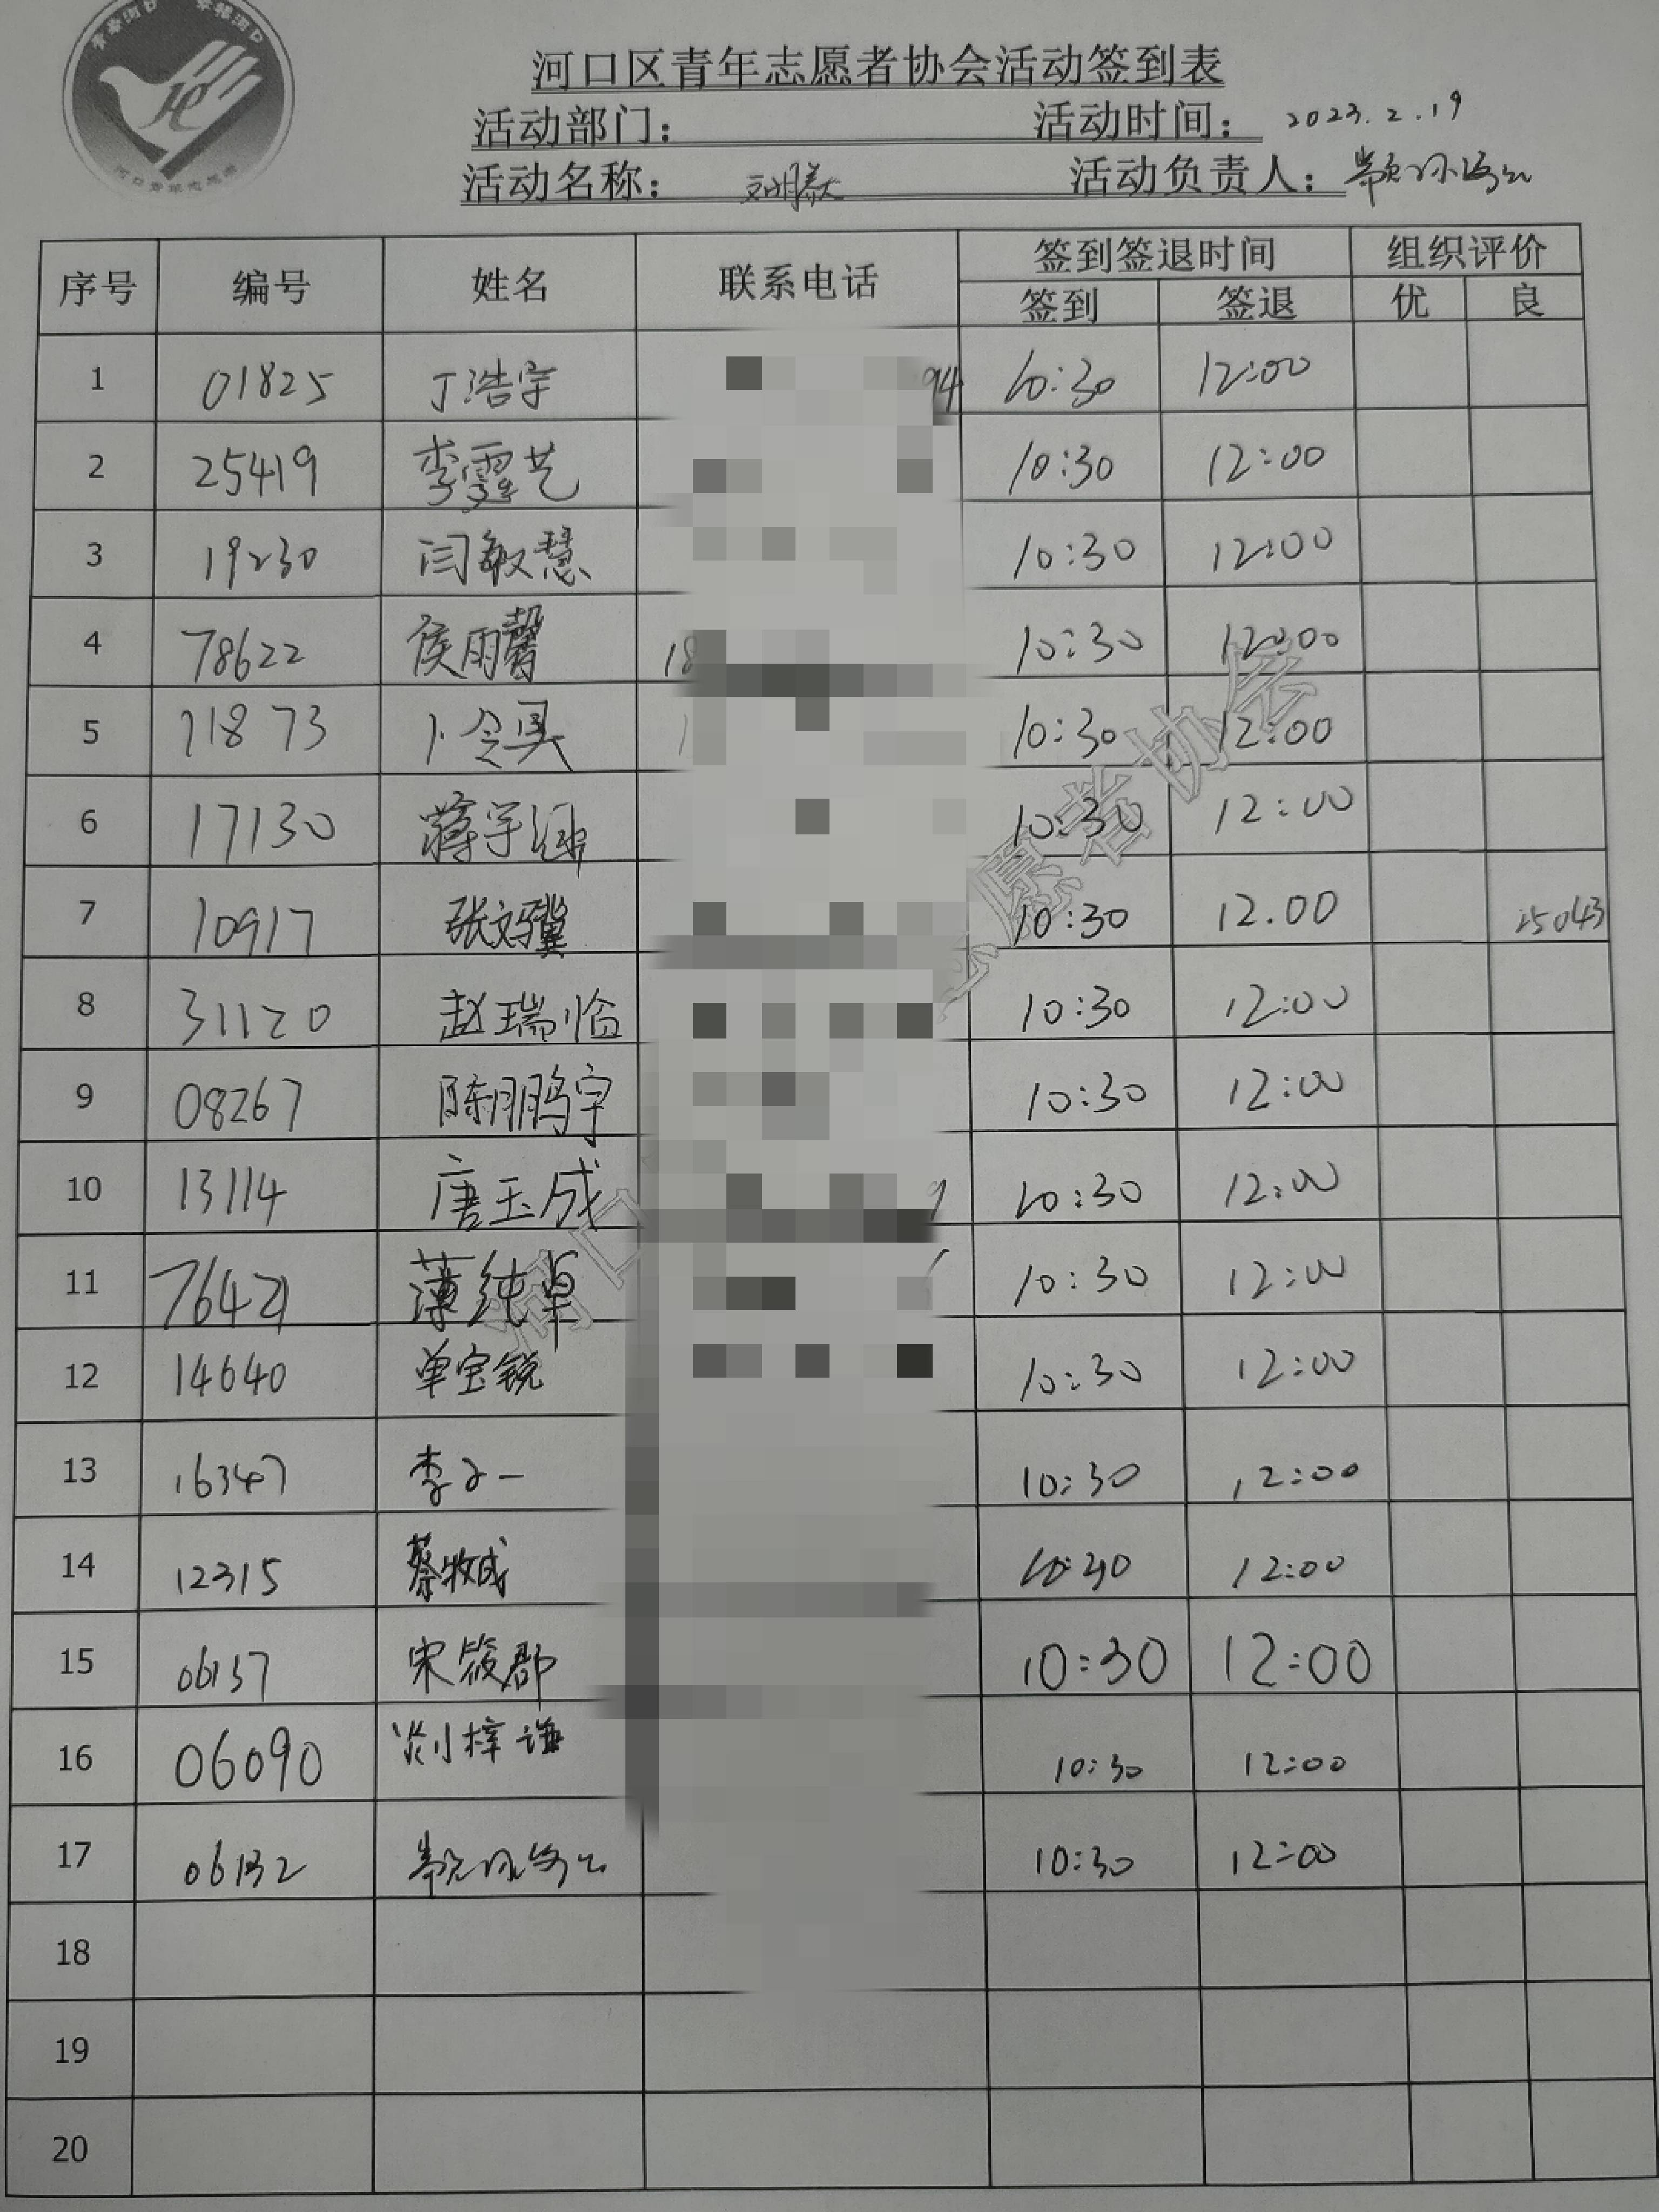 河口区青年志愿者协会活动签到表
活动部门: 活动时间: 2023.2.19
活动名称: 活动负责人:
序号 编号 姓名 联系电话 签到签退时间 组织评价
签到 签退 优 良
1 01825 丁浩宇 94 10:30 12:00
2 25419 李霆艺 10:30 12:00
3 19230 闫敏慧 10:30 12:00
4 78622 侯雨馨 18 10:30 12:00
5 11873 卜令昊 1 10:30 12:00
6 17130 蒋宇 10:30 12:00
7 10917 张文骥 10:30 12.00 25043
8 31120 赵瑞临 10:30 12:00
9 08267 陈鹏宇 10:30 12:00
10 13114 唐玉成 9 10:30 12:00
11 76421 薄纯卓 10:30 12:00
12 14640 单宝锐 10:30 12:00
13 16347 李子一 10:30 12:00
14 12315 蔡牧成 10:40 12:00
15 06137 宋筱郡 10:30 12:00
16 06090 刘梓谦 10:30 12:00
17 06132 10:30 12:00
18
19
20
河口 愿者协会